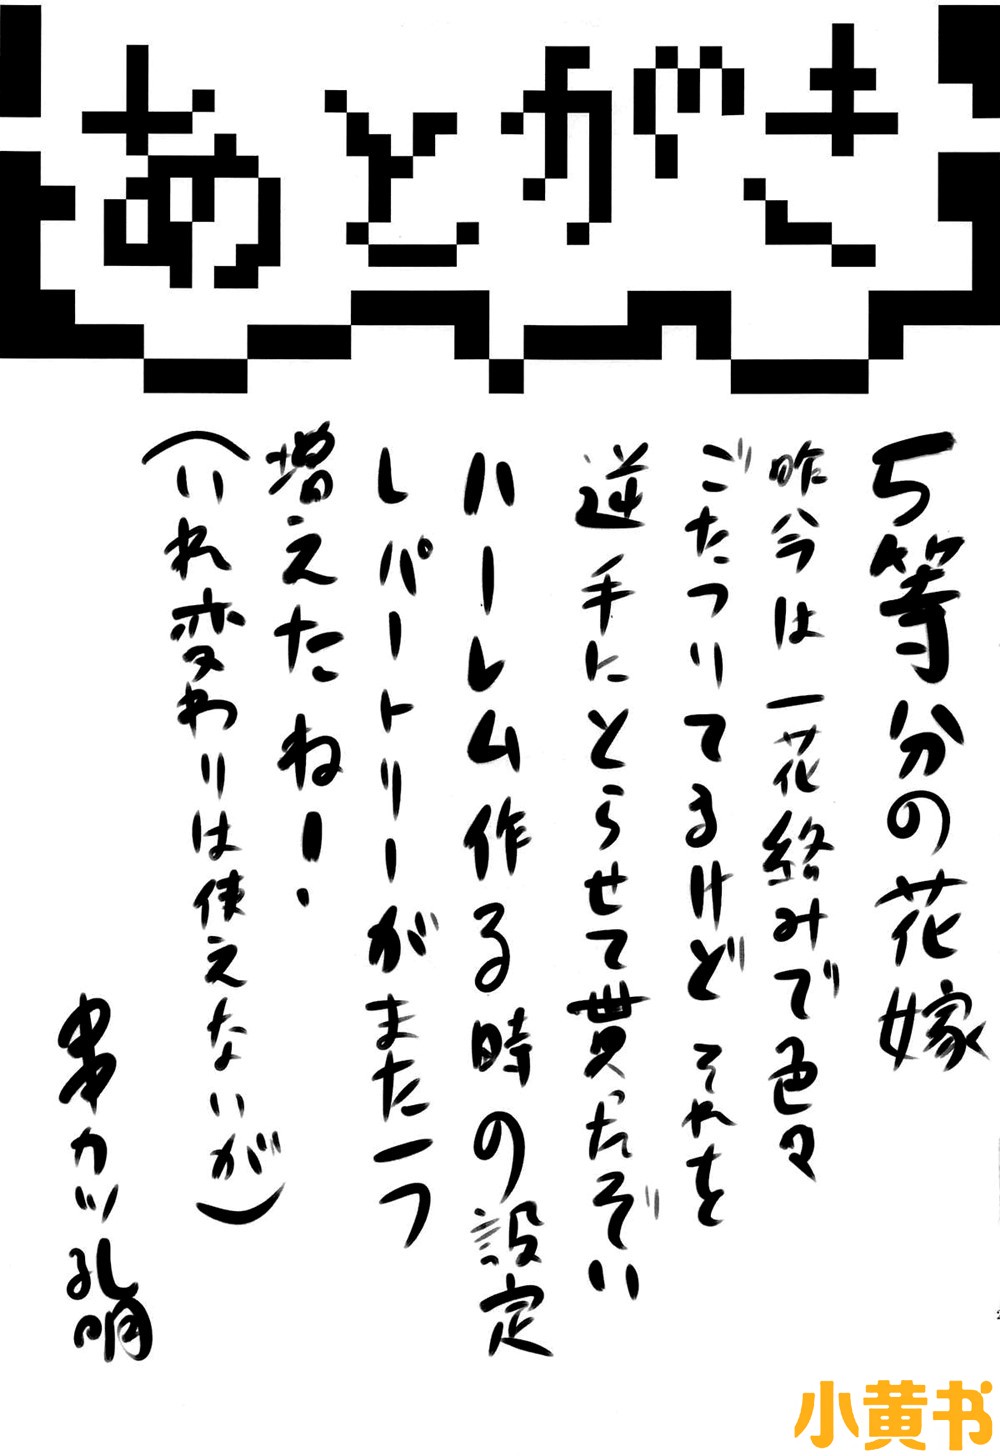 あとがき
5等分の花嫁
昨今は一花絡みで色々
ごたつりてるけどそれを
逆手にとらせて貰ったぞい
ハーレム作る時の設定
レパートリーがまた一つ
増えたね!
(いれ変わりは使えないが)
串カツ孔明
小黄书